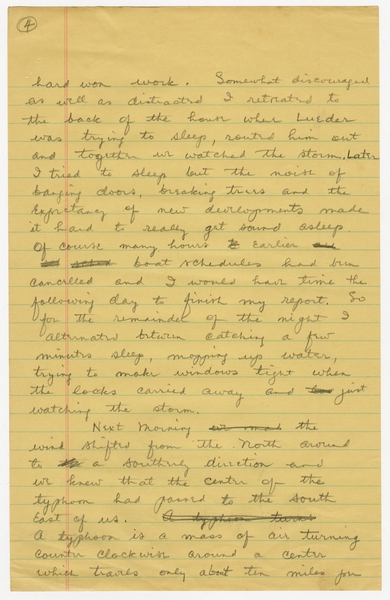 4
hard won work. Somewhat discouraged
as well as distracted I retreated to
the back of the house where Lueder
was trying to sleep, routed him out
and together we watched the storm. Later
I tried to sleep but the noise of
banging doors, breaking trees and the
expectancy of new developments made
it hard to really get sound asleep
Of course many hours earlier
boat schedules had been
cancelled and I would have time the
following day to finish my report. So
for the remainder of the night I
alternated between catching a few
minutes sleep, mopping up water,
trying to make windows tight when
the locks carried away and just
watching the storm.
Next Morning the
wind shifted from the North around
to a southerly direction and
we knew that the centre of the
typhoon had passed to the south
East of us. A typhoon turns
A typhoon is a mass of air turning
counter clockwise around a center
which travels only about ten miles per